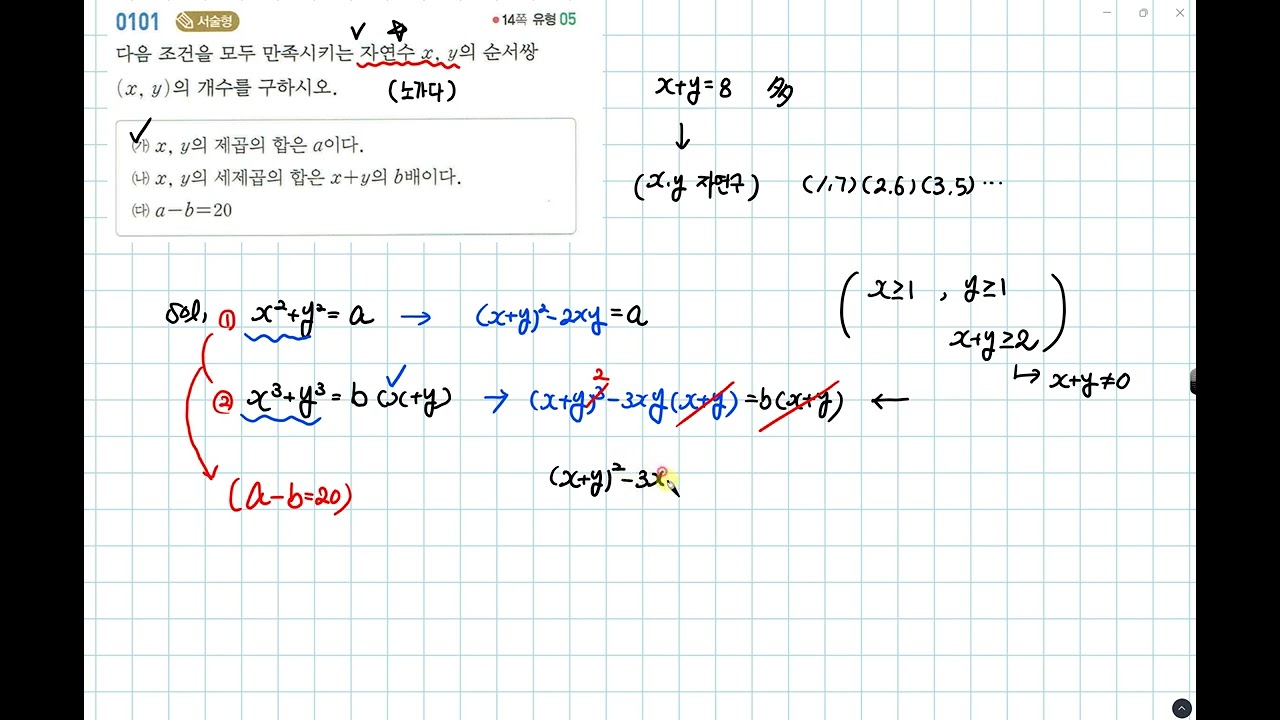 0101 서술형 •14쪽 유형 05
다음 조건을 모두 만족시키는 자연수 x, y의 순서쌍
(x, y)의 개수를 구하시오. (노가다)
㈎ x, y의 제곱의 합은 a이다.
㈏ x, y의 세제곱의 합은 x+y의 b배이다.
㈐ a-b=20
x+y=8 多
↓
(x.y 자연수) (1,7)(2.6)(3.5)…
(x≥1 , y≥1
x+y≥2)
↳ x+y≠0
sol, ① x²+y²=a → (x+y)²-2xy=a
② x³+y³=b(x+y) → (x+y)³-3xy(x+y)=b(x+y) ←
2
(x+y)²-3x
(a-b=20)